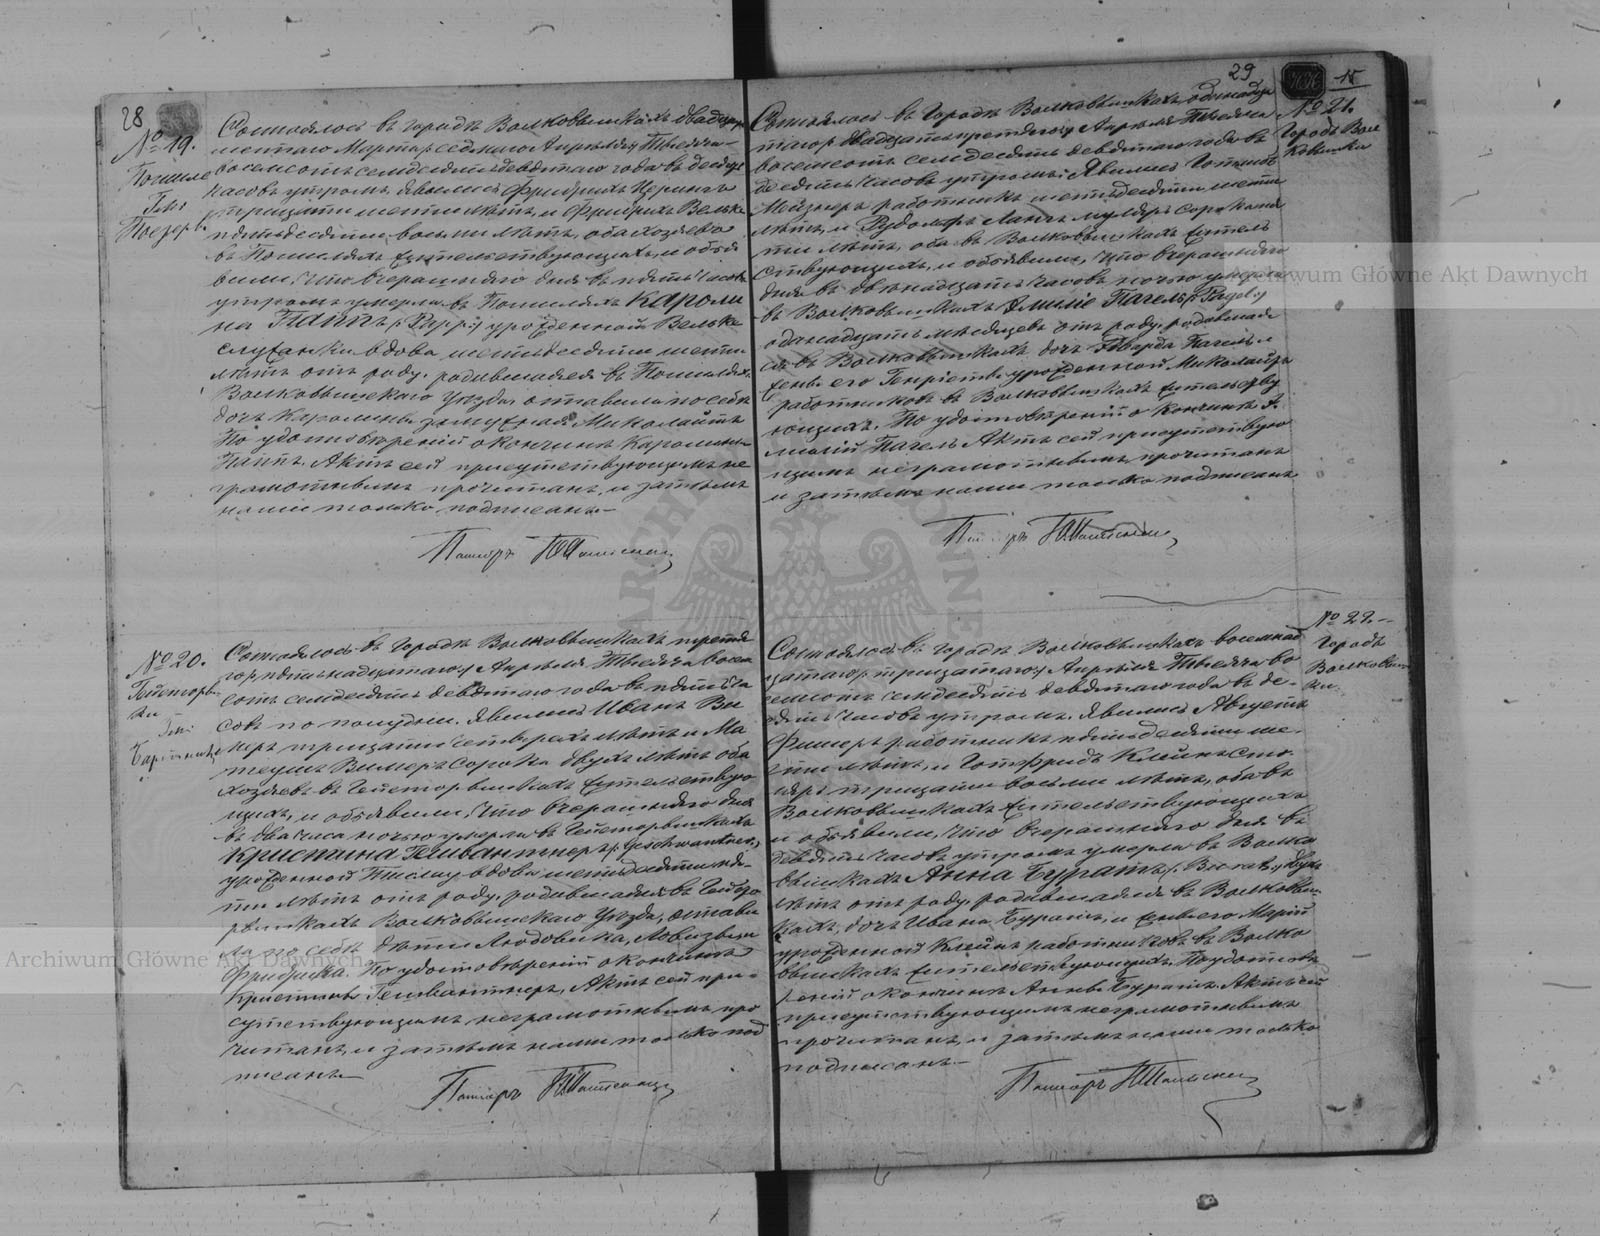 28
№ 19.
Пошиле
Состоялось въ городѣ Волковышкахъ двадцать
шестаго Марта /: седмаго Апрѣля :/ Тысяча
восемсотъ семдесятъ девятаго года въ десять
часовъ утромъ. Явились Фридрихъ
тридцати шести лѣтъ, и Фридрихъ Вельке
пятьдесяти восьми лѣтъ, оба хозяева
въ Пошиляхъ жительствующіе, и объя
вили, что вчерашняго дня въ пять часовъ
утромъ умерла въ Пошиляхъ Кароли
на Паппъ /: :/ урожденной Вельке
служанка вдова, шестьдесяти шести
лѣтъ отъ роду, родившаяся въ Пошиляхъ
Волковышскаго Уѣзда, оставила по себѣ
дочь Каролину замужнюю Миколайтъ
По удостовѣреніи о кончинѣ Каролины
Паппъ, Актъ сей присутствующимъ не
грамотнымъ прочитанъ, и затѣмъ
нами только подписанъ.—
Пасторъ
№ 20.
Состоялось въ городѣ Волковышкахъ третья
го /: пятьнадцатаго :/ Апрѣля Тысяча восем
сотъ семдесятъ девятаго года въ пять ча
совъ по полудни. Явились Иванъ Ви
меръ тридцати четырехъ лѣтъ и Ма
теушъ Вимеръ сорока двухъ лѣтъ оба
хозяева въ жительствую
щіе, и объявили, что вчерашняго дня
въ два часа ночью умерла въ
Кристина Гешвантнеръ /: Geschwantner :/
урожденной вдова шестьдесяти пя
ти лѣтъ отъ роду, родившаяся въ
Волковышскаго Уѣзда, остави
ла по себѣ дѣти Людовика, Ловизу и
Фридриха. По удостовѣреніи о кончинѣ
Кристины Гешвантнеръ, Актъ сей при
сутствующимъ неграмотнымъ про
читанъ, и затѣмъ нами только под
писанъ.—
Пасторъ
29
15
№ 21.
Городъ Вол
ковышки
Состоялось въ городѣ Волковышкахъ одинадца
таго /: двадцать третьяго :/ Апрѣля Тысяча
восемсотъ семдесятъ девятаго года въ
десять часовъ утромъ. Явились Готлибъ
Мейзнеръ работникъ шестьдесяти шести
лѣтъ, и Рудольфъ Лангъ муляръ сорока
лѣтъ, оба въ Волковышкахъ житель
ствующіе, и объявили, что вчерашняго
дня въ двѣнадцать часовъ ночью умерла
въ Волковышкахъ Эмилія Пагель /: Pagel :/
одинадцать мѣсяцевъ отъ роду, родившая
ся въ Волковышкахъ, дочь Эдварда Пагель и
жены его Генріетты урожденной Миколайтъ
работниковъ въ Волковышкахъ жительству
ющихъ. По удостовѣреніи о кончинѣ Э
миліи Пагель Актъ сей присутствую
щимъ неграмотнымъ прочитанъ
и затѣмъ нами только подписанъ
Пасторъ
№ 22.—
Городъ
Волковыш
ки
Состоялось въ городѣ Волковышкахъ восемнад
цатаго /: тридцатаго :/ Апрѣля Тысяча во
семсотъ семдесятъ девятаго года въ де
сять часовъ утромъ. Явились Августъ
Фишеръ работникъ пятьдесяти ше
сти лѣтъ, и Готфридъ Клейнъ сто
ляръ тридцати восьми лѣтъ, оба въ
Волковышкахъ жительствующіе
и объявили, что вчерашняго дня въ
девять часовъ утромъ умерла въ Волко
вышкахъ Анна Буратъ /: :/ двухъ
лѣтъ отъ роду, родившаяся въ Волковыш
кахъ, дочь Ивана Буратъ, и жены его Маріи
урожденной Клейнъ работниковъ въ Волко
вышкахъ жительствующихъ. По удостовѣ
реніи о кончинѣ Анны Буратъ, Актъ сей
присутствующимъ неграмотнымъ
прочитанъ, и затѣмъ нами только
подписанъ.—
Пасторъ
Archiwum Główne Akt Dawnych
Archiwum Główne Akt Dawnych